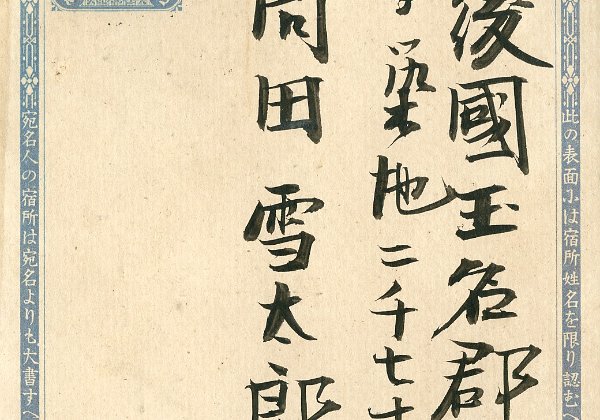 此の表面に は宿所姓名を限り認む
後國玉名郡
築地二千七
田雪太郎
宛名人の宿所は宛名よりも大書すへ